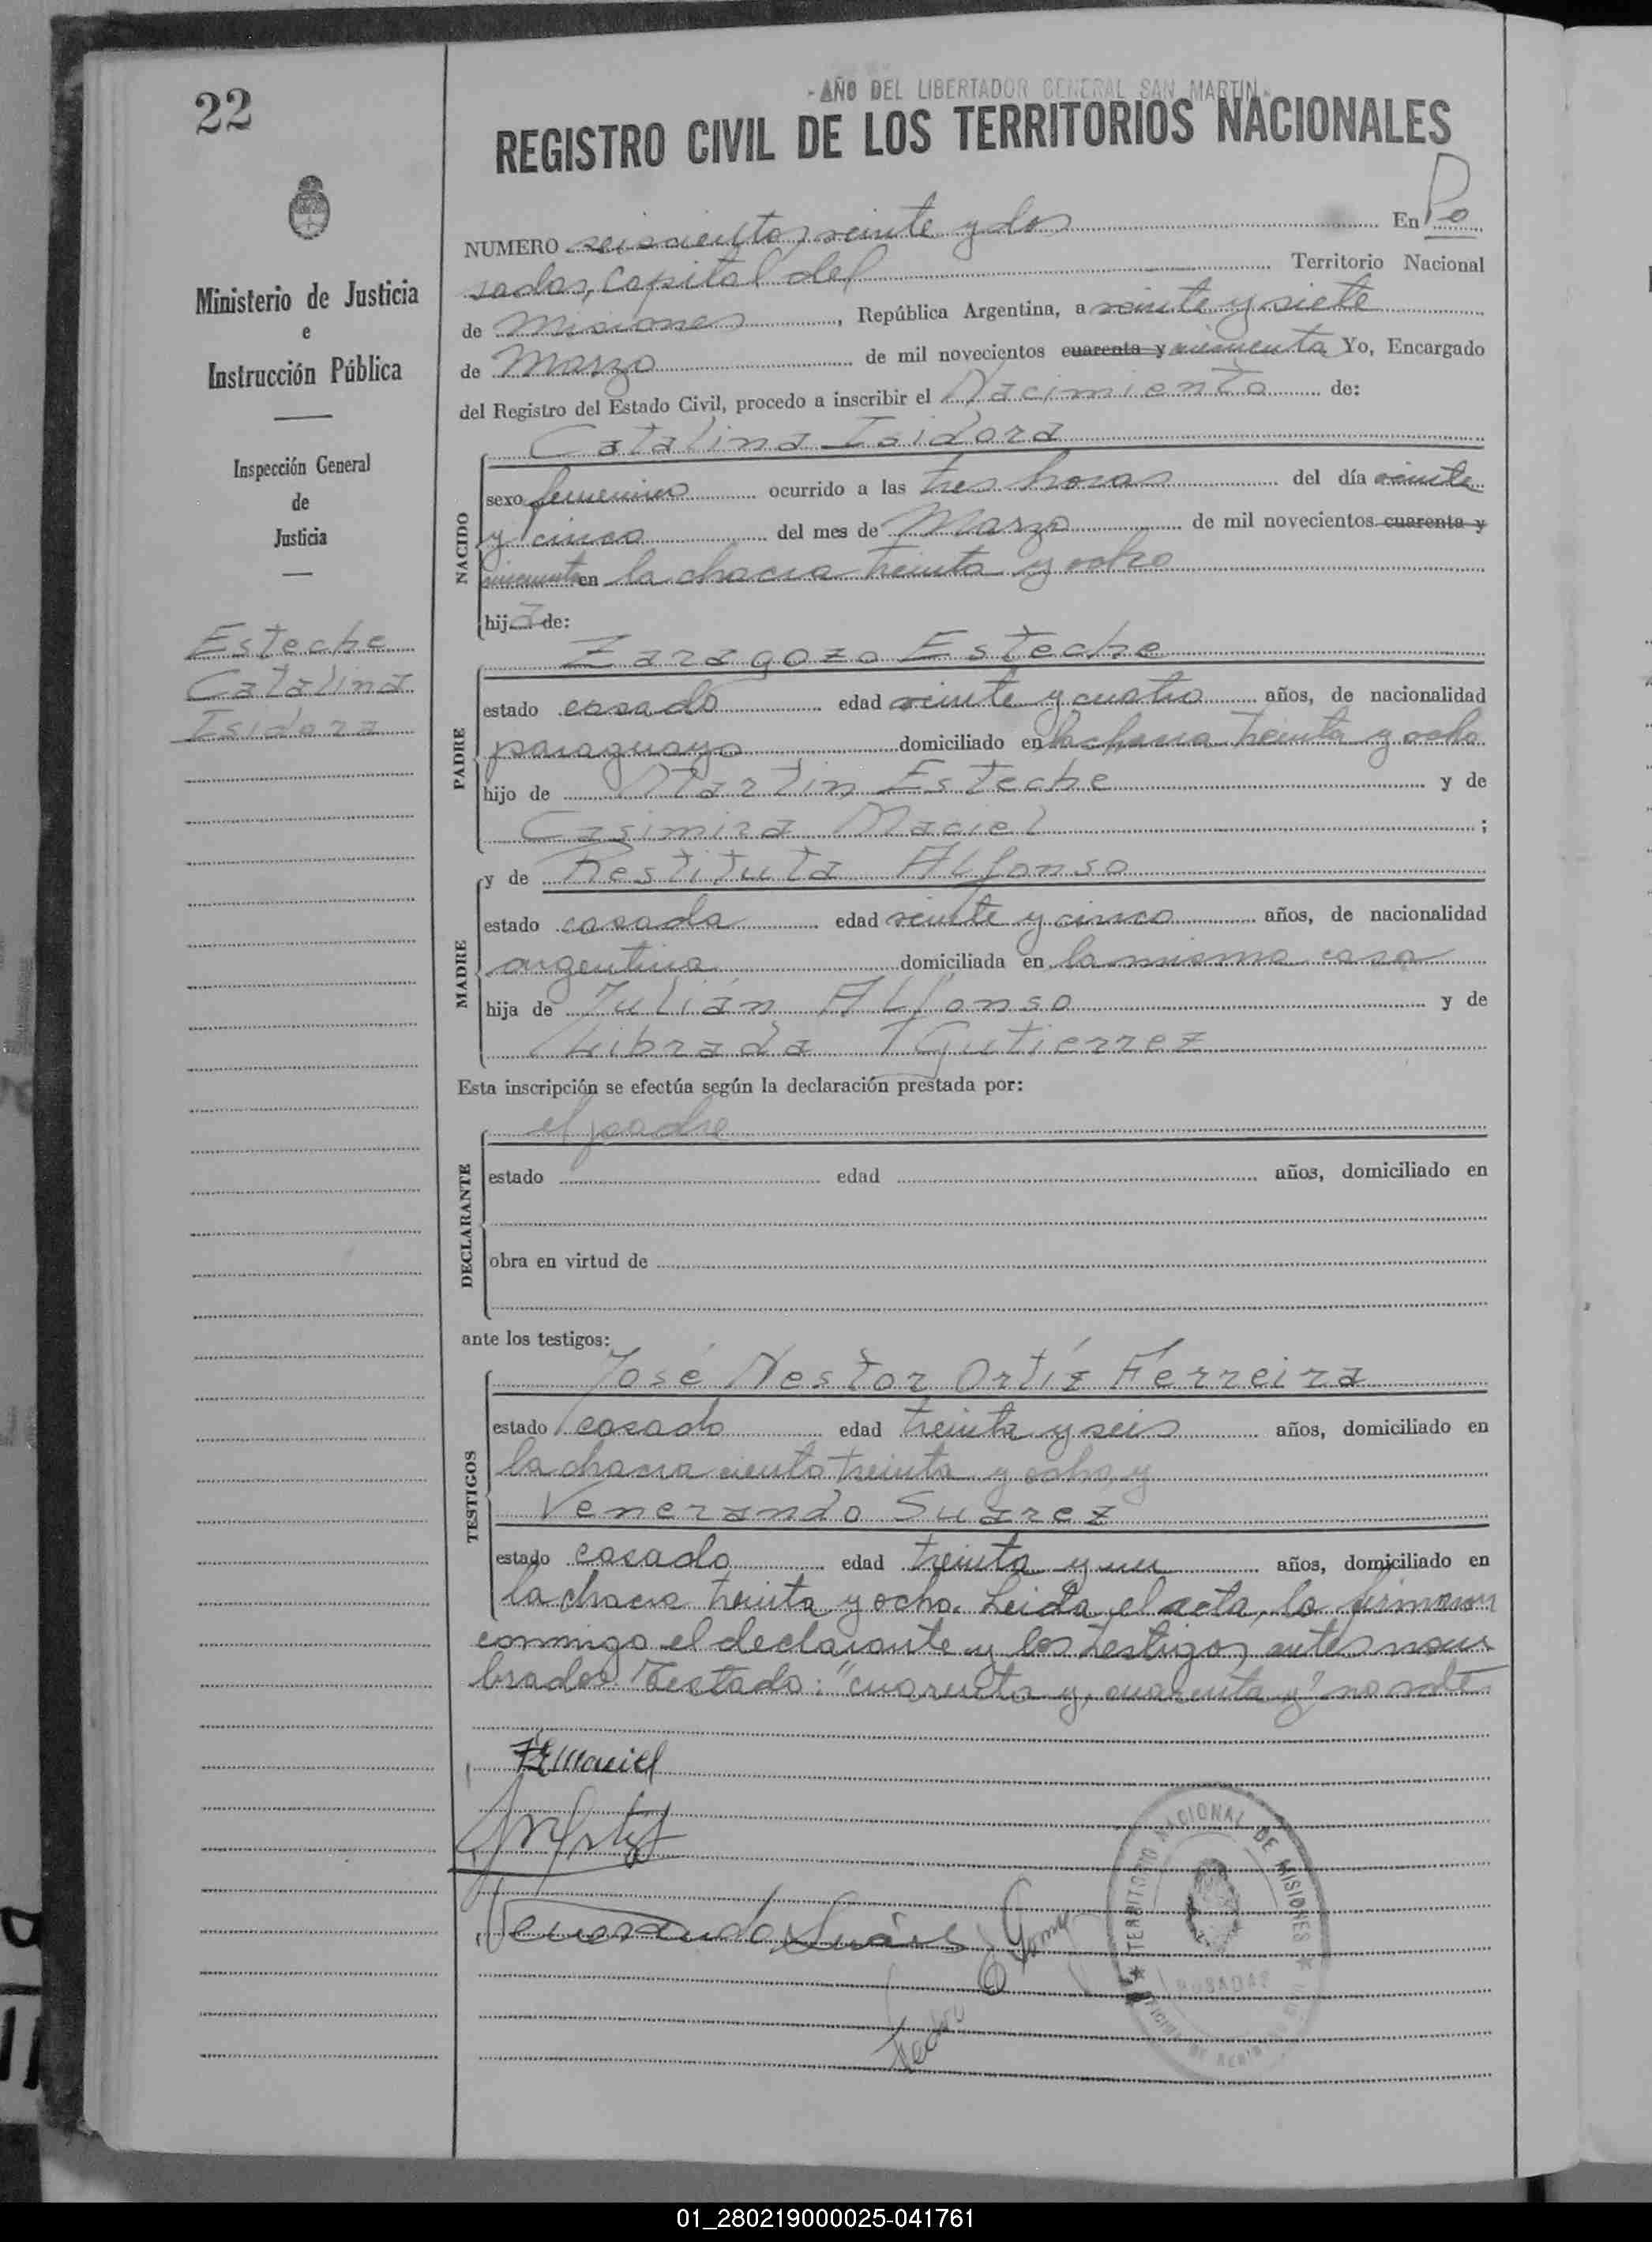 22
- AÑO DEL LIBERTADOR GENERAL SAN MARTIN -
REGISTRO CIVIL DE LOS TERRITORIOS NACIONALES
Ministerio de Justicia
e
Instrucción Pública
Inspección General
de
Justicia
Esteche
Catalina
Isidora
NUMERO seiscientos veinte y dos En Po
sadas, capital del Territorio Nacional
de Misiones, República Argentina, a veinte y siete
de Marzo de mil novecientos cuarenta y cincuenta Yo, Encargado
del Registro del Estado Civil, procedo a inscribir el Nacimiento de:
NACIDO
Catalina Isidora
sexo femenino ocurrido a las tres horas del día veinte
y cinco del mes de Marzo de mil novecientos cuarenta y
cincuenta en la chacra treinta y ocho
hija de:
PADRE
Zaragozo Esteche
estado casado edad veinte y cuatro años, de nacionalidad
paraguayo domiciliado en la chacra treinta y ocho
hijo de Martin Esteche y de
Casimira Maciel ;
MADRE
y de Restituta Alfonso
estado casada edad veinte y cinco años, de nacionalidad
argentina domiciliada en la misma casa
hija de Julián Alfonso y de
Librada Gutierrez
Esta inscripción se efectúa según la declaración prestada por:
DECLARANTE
el padre
estado edad años, domiciliado en
obra en virtud de
ante los testigos:
TESTIGOS
José Nestor Ortíz Ferreira
estado casado edad treinta y seis años, domiciliado en
la chacra ciento treinta y ocho, y
Venerando Suarez
estado casado edad treinta y un años, domiciliado en
la chacra treinta y ocho. Leida el acta, la firmaron
conmigo el declarante y los testigos antes nom
brados. Testado: "cuarenta y, cuarenta y", no vale.
Venerando Suárez
TERRITORIO NACIONAL DE MISIONES
POSADAS
01_280219000025-041761